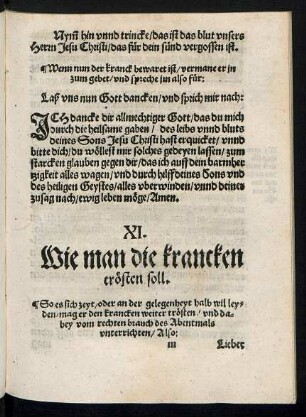 Nym̃ hin vnnd trincke/ das ist das blut vnsers
Herrn Jesu Christi/ das für dein sünd vergossen ist.
¶ Wenn nun der kranck bewaret ist/ vermane er jn
zum gebet/ vnd spreche jm also für:
Laß vns nun Gott dancken/ vnd sprich mir nach:
ICH dancke dir allmechtiger Gott/ das du mich
durch die heilsame gaben/ des leibs vnnd bluts
deines Sons Jesu Christi hast erquicket/ vnnd
bitte dich/ du wöllest mir solches gedeyen lassen/ zum
starcken glauben gegen dir/ das ich auff dein barmher
tzigkeit alles wagen/ vnd durch hilff deines Sons vnd
des heiligen Geystes/ alles vberwinden/ vnnd deiner
zusag nach/ ewig leben möge/ Amen.
XI.
Wie man die krancken
trösten soll.
¶ So es sich zeyt/ oder an der gelegenheyt halb wil ley-
den/ mag er den krancken weiter trösten/ vnd da-
bey vom rechten brauch des Abentmals
vnterrichten/ Also:
m Lieber